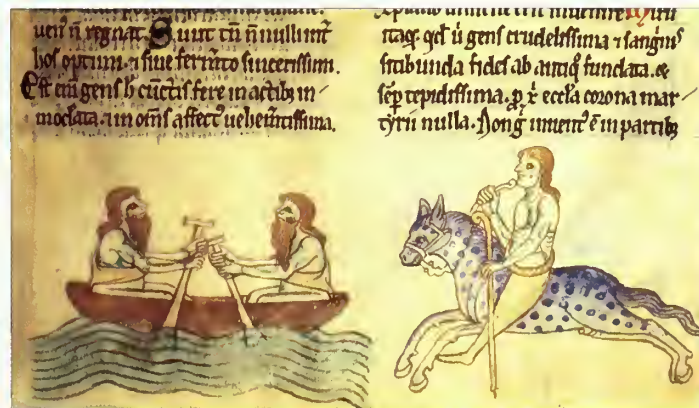 uen̄ n̄ regnat. Sunt tn̄ n̄nulli int̄
hos optimi. ⁊ siue fermto sincerissimi.
Est eni gens h̄ cunctis fere in actibȝ in
modata. ⁊ in om̄s affect uehem̄tissima.
itaqȝ qd̓ ꝟ gens crudelissima ⁊ sanguīs
sitibunda fides ab antiq̇ fundata. &
sēp tepidissima. ꝓ x̄ eccl̄a corona mar
tyrii nulla. Non g̊ inuent̓ ē in partibȝ